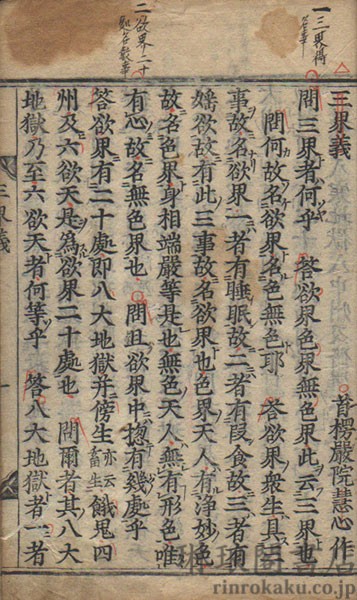 一三界得
二欲界二十
三界義
首楞嚴院慧心作
問三界者何乎 答欲界色界無色界此云三界也
問何故名欲界名色無色耶 答欲界衆生具三
事故名欲界一者有睡眠故二者有段食故三者有
婬欲故有此三事故名欲界也色界天人有淨妙色
故名色界身相端嚴等是也無色天人無有形色唯
有心故名無色界也 問且欲界中惣有幾處乎
答欲界有二十處即八大地獄并傍生亦云畜生餓鬼四
州及六欲天是為欲界二十處也 問爾者其八大
地獄乃至六欲天者何等乎 答八大地獄者一者
三界義
琳琅閣書店
rinrokaku.co.jp